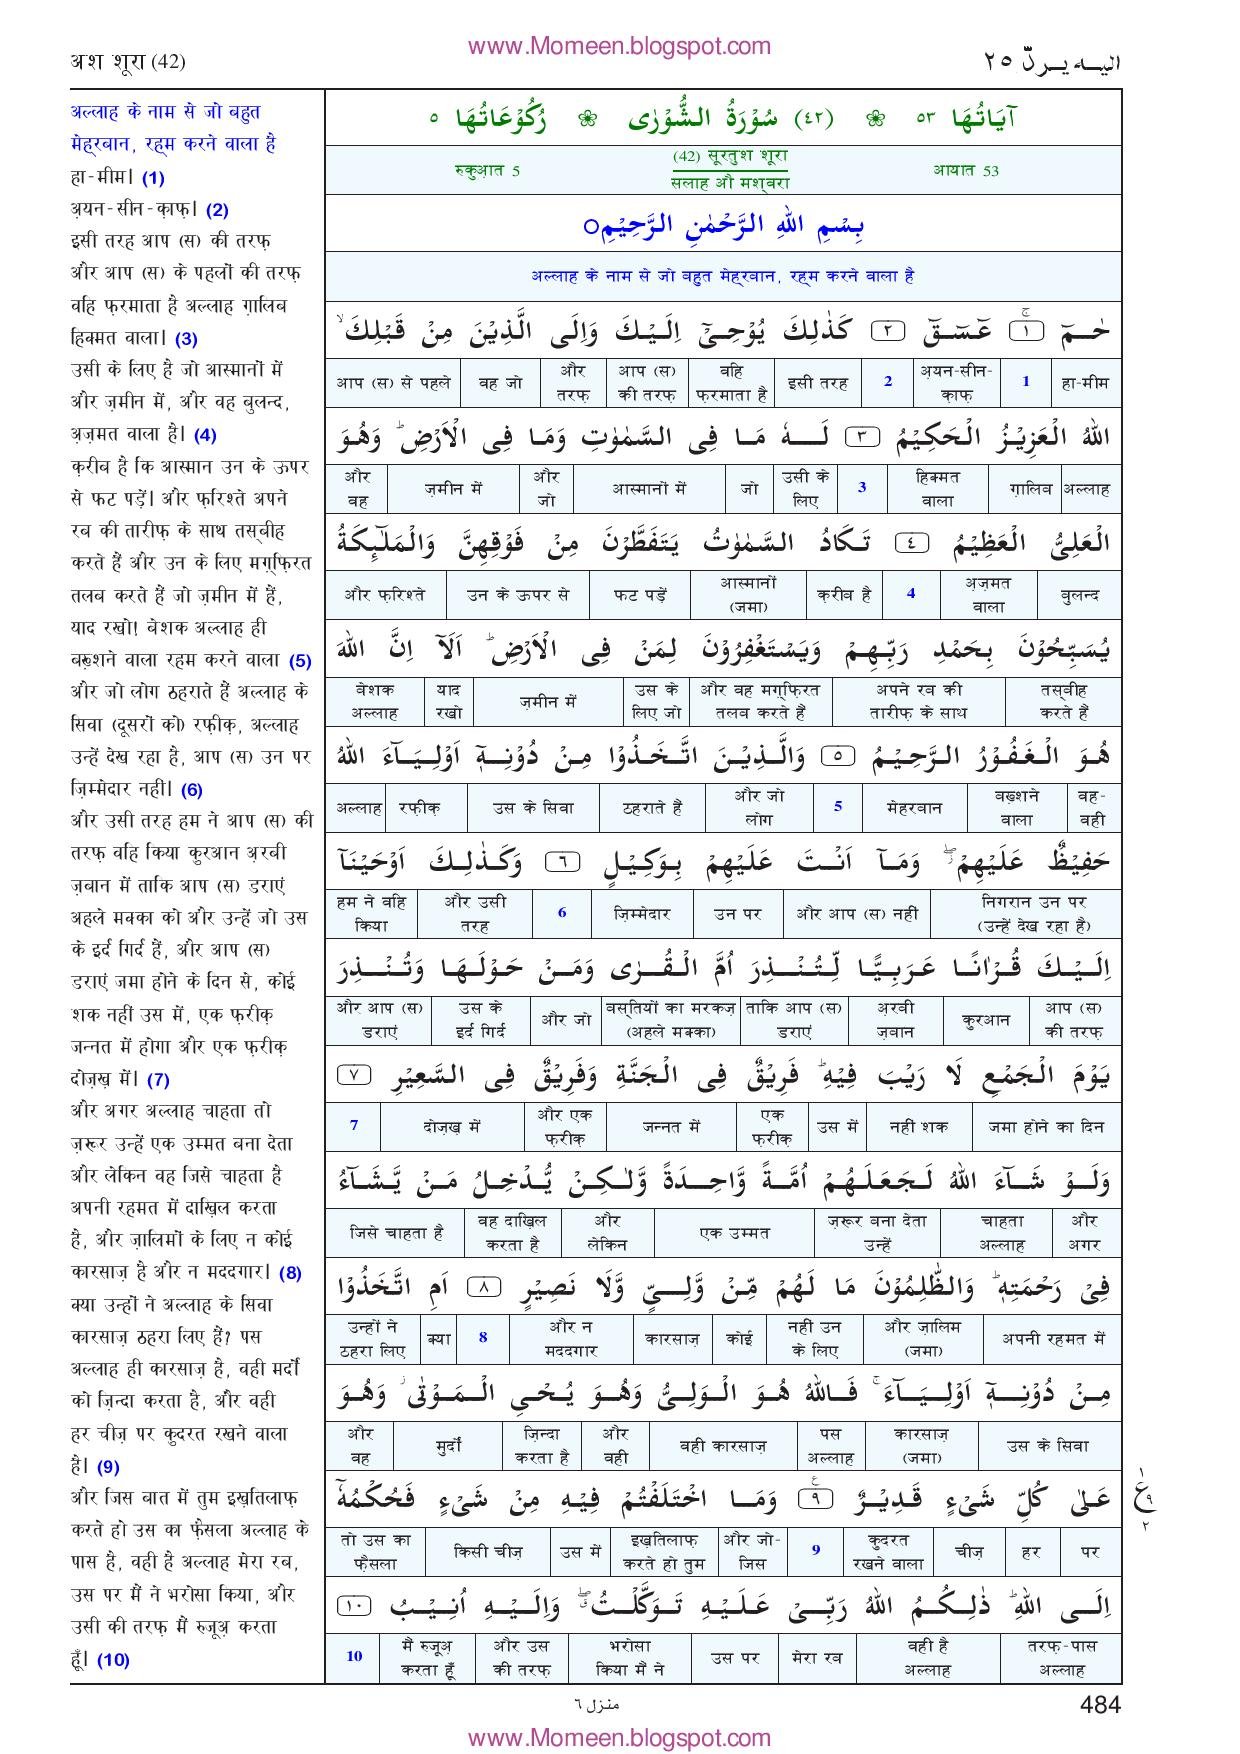 www.Momeen.blogspot.com
अश शूरा (42)
الیـه یـردّ ٢٥
अल्लाह के नाम से जो बहुत
मेह्रबान, रह्म करने वाला है
हा-मीम। (1)
अ़यन-सीन-क़ाफ़। (2)
इसी तरह आप (स) की तरफ़
और आप (स) के पहलों की तरफ़
वहि फ़रमाता है अल्लाह ग़ालिब
हिक्मत वाला। (3)
उसी के लिए है जो आस्मानों में
और ज़मीन में, और वह बुलन्द,
अज़मत वाला है। (4)
क़रीब है कि आस्मान उन के ऊपर
से फट पड़ें। और फ़रिश्ते अपने
रब की तारीफ़ के साथ तस्बीह
करते हैं और उन के लिए मग़्फ़िरत
तलब करते हैं जो ज़मीन में हैं,
याद रखो! बेशक अल्लाह ही
बख़्शने वाला रहम करने वाला (5)
और जो लोग ठहराते हैं अल्लाह के
सिवा (दूसरों को) रफ़ीक़, अल्लाह
उन्हें देख रहा है, आप (स) उन पर
ज़िम्मेदार नहीं। (6)
और उसी तरह हम ने आप (स) की
तरफ़ वहि किया कुरआन अ़रबी
ज़बान में ताकि आप (स) डराएं
अहले मक्का को और उन्हें जो उस
के इर्द गिर्द हैं, और आप (स)
डराएं जमा होने के दिन से, कोई
शक नहीं उस में, एक फ़रीक़
जन्नत में होगा और एक फ़रीक़
दोज़ख़ में। (7)
और अगर अल्लाह चाहता तो
ज़रूर उन्हें एक उम्मत बना देता
और लेकिन वह जिसे चाहता है
अपनी रहमत में दाख़िल करता
है, और ज़ालिमों के लिए न कोई
कारसाज़ है और न मददगार। (8)
क्या उन्हों ने अल्लाह के सिवा
कारसाज़ ठहरा लिए हैं? पस
अल्लाह ही कारसाज़ है, वही मर्दों
को ज़िन्दा करता है, और वही
हर चीज़ पर कुदरत रखने वाला
है। (9)
और जिस बात में तुम इख़तिलाफ़
करते हो उस का फ़ैसला अल्लाह के
पास है, वही है अल्लाह मेरा रब,
उस पर मैं ने भरोसा किया, और
उसी की तरफ़ मैं रुजूअ़ करता
हूँ। (10)
آيَاتُهَا ٥٣ ❀ (٤٢) سُوْرَةُ الشُّوْرٰى ❀ رُكُوْعَاتُهَا ٥
रुकुआ़त 5 (42) सूरतुश शूरा आयात 53
सलाह औ मश्वरा
بِسْمِ اللهِ الرَّحْمٰنِ الرَّحِيْمِ
अल्लाह के नाम से जो बहुत मेह्रबान, रह्म करने वाला है
حٰـمٓ ١ۚ عٓسٓقٓ ٢ كَذٰلِكَ يُوْحِىْٓ اِلَيْكَ وَاِلَى الَّذِيْنَ مِنْ قَبْلِكَ ۙ
आप (स) से पहले वह जो और तरफ़ आप (स) की तरफ़ वहि फ़रमाता है इसी तरह 2 अ़यन-सीन-क़ाफ़ 1 हा-मीम
اللهُ الْعَزِيْزُ الْحَكِيْمُ ٣ لَـهٗ مَا فِى السَّمٰوٰتِ وَمَا فِى الْاَرْضِ ؕ وَهُوَ
और वह ज़मीन में और जो आस्मानों में जो उसी के लिए 3 हिक्मत वाला ग़ालिब अल्लाह
الْعَلِىُّ الْعَظِيْمُ ٤ تَكَادُ السَّمٰوٰتُ يَتَفَطَّرْنَ مِنْ فَوْقِهِنَّ وَالْمَلٰٓئِكَةُ
और फ़रिश्ते उन के ऊपर से फट पड़ें आस्मानों (जमा) क़रीब है 4 अ़ज़मत वाला बुलन्द
يُسَبِّحُوْنَ بِحَمْدِ رَبِّهِمْ وَيَسْتَغْفِرُوْنَ لِمَنْ فِى الْاَرْضِ ؕ اَلَآ اِنَّ اللهَ
बेशक अल्लाह याद रखो ज़मीन में उस के लिए जो और वह मग़्फ़िरत तलब करते हैं अपने रब की तारीफ़ के साथ तस्बीह करते हैं
هُوَ الْغَفُوْرُ الرَّحِيْمُ ٥ وَالَّذِيْنَ اتَّخَذُوْا مِنْ دُوْنِهٖٓ اَوْلِيَآءَ اللهُ
अल्लाह रफ़ीक़ उस के सिवा ठहराते हैं और जो लोग 5 मेहरबान बख़्शने वाला वह-वही
حَفِيْظٌ عَلَيْهِمْ ۖ وَمَآ اَنْتَ عَلَيْهِمْ بِوَكِيْلٍ ٦ وَكَذٰلِكَ اَوْحَيْنَآ
हम ने वहि किया और उसी तरह 6 ज़िम्मेदार उन पर और आप (स) नहीं निगरान उन पर (उन्हें देख रहा है)
اِلَيْكَ قُرْاٰنًا عَرَبِيًّا لِّتُنْذِرَ اُمَّ الْقُرٰى وَمَنْ حَوْلَهَا وَتُنْذِرَ
और आप (स) डराएं उस के इर्द गिर्द और जो बस्तियों का मरकज़ (अहले मक्का) ताकि आप (स) डराएं अ़रबी ज़बान कुरआन आप (स) की तरफ़
يَوْمَ الْجَمْعِ لَا رَيْبَ فِيْهِ ؕ فَرِيْقٌ فِى الْجَنَّةِ وَفَرِيْقٌ فِى السَّعِيْرِ ٧
7 दोज़ख़ में और एक फ़रीक़ जन्नत में एक फ़रीक़ उस में नहीं शक जमा होने का दिन
وَلَوْ شَآءَ اللهُ لَجَعَلَهُمْ اُمَّةً وَّاحِدَةً وَّلٰكِنْ يُّدْخِلُ مَنْ يَّشَآءُ
जिसे चाहता है वह दाख़िल करता है और लेकिन एक उम्मत ज़रूर बना देता उन्हें चाहता अल्लाह और अगर
فِىْ رَحْمَتِهٖ ؕ وَالظّٰلِمُوْنَ مَا لَهُمْ مِّنْ وَّلِىٍّ وَّلَا نَصِيْرٍ ٨ اَمِ اتَّخَذُوْا
उन्हों ने ठहरा लिए क्या 8 और न मददगार कारसाज़ कोई नहीं उन के लिए और ज़ालिम (जमा) अपनी रहमत में
مِنْ دُوْنِهٖٓ اَوْلِيَآءَ ۚ فَاللهُ هُوَ الْوَلِىُّ وَهُوَ يُحْىِ الْمَوْتٰى ۡ وَهُوَ
और वह मुर्दों ज़िन्दा करता है और वही वही कारसाज़ पस अल्लाह कारसाज़ (जमा) उस के सिवा
عَلٰى كُلِّ شَىْءٍ قَدِيْرٌ ٩ وَمَا اخْتَلَفْتُمْ فِيْهِ مِنْ شَىْءٍ فَحُكْمُهٗٓ
तो उस का फ़ैसला किसी चीज़ उस में इख़तिलाफ़ करते हो तुम और जो-जिस 9 कुदरत रखने वाला चीज़ हर पर
اِلَى اللهِ ؕ ذٰلِكُمُ اللهُ رَبِّىْ عَلَيْهِ تَوَكَّلْتُ ۖ وَاِلَيْهِ اُنِيْبُ ١٠
10 मैं रुजूअ़ करता हूँ और उस की तरफ़ भरोसा किया मैं ने उस पर मेरा रब वही है अल्लाह तरफ़-पास अल्लाह
١
ع ٩
٢
منزل ٦
484
www.Momeen.blogspot.com